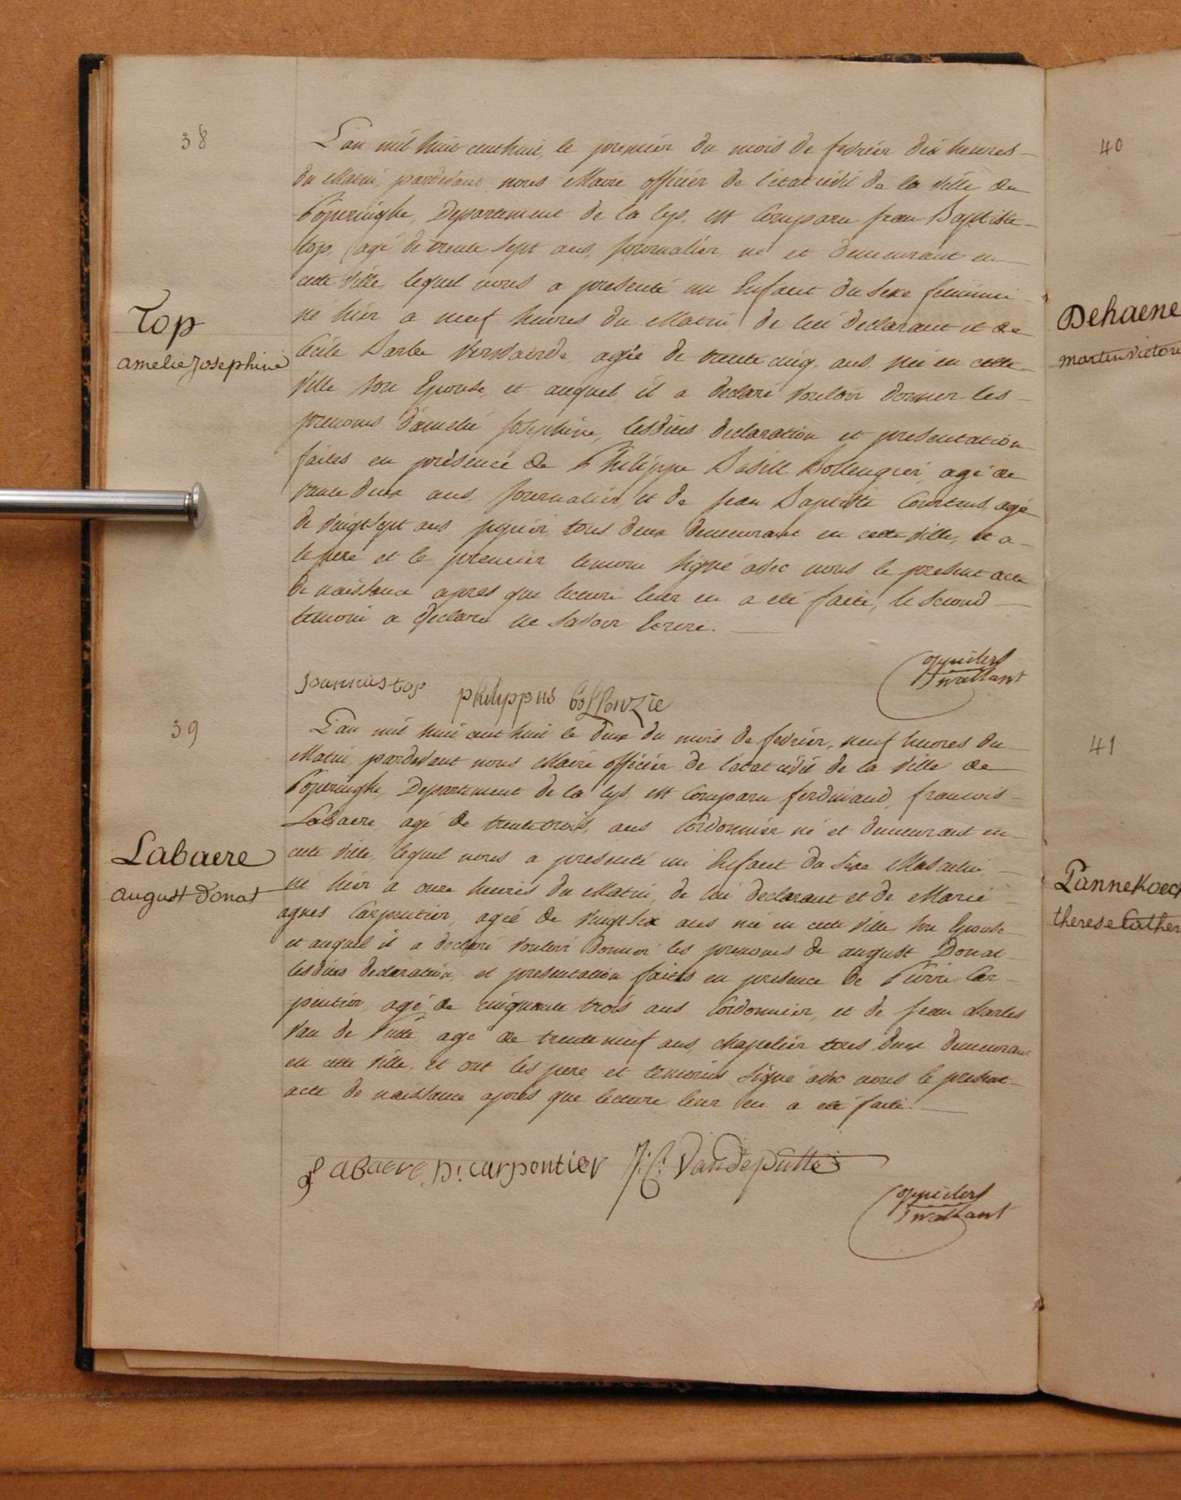 38
Top
amelie Josephine
L'an mil huit cent huit, le premier du mois de fevrier dix heures
du Matin, pardevant nous Maire officier de l'etat civil de la ville de
Poperinghe, Departement de la Lys, est comparu jean Baptiste
top, agé de trente sept ans, journalier, né et demeurant en
cette ville, lequel nous a presenté un Enfant du sexe feminin
né hier a neuf heures du Matin de lui declarant et de
Cécile Barbe agée de trente cinq ans, née en cette
ville son Epouse, et auquel il a declaré vouloir donner les
prenoms d'amelie josephine, lesdites declaration et presentation
faites en présence de Philippe Basile Bollengier, agé de
trente deux ans, journalier, et de jean Baptiste agé
de vingt sept ans tous deux demeurant en cette ville, et a
le pere et le premier temoin signé avec nous le present acte
de naissance après que lecture leur en a été faite, le second
temoin a declaré ne savoir Ecrire.
Joannes top philippus
39
Labaere
august Donat
L'an mil huit cent huit le deux du mois de fevrier, neuf heures du
Matin, pardevant nous Maire officier de l'etat civil de la ville de
Poperinghe, Departement de la Lys, est comparu ferdinand, francois
Labaere agé de trente trois, ans Cordonnier né et demeurant en
cette ville, lequel nous a presenté un Enfant du sexe Masculin
né hier a onze heures du Matin, de lui declarant et de Marie
agnes Carpentier, agée de vingt six ans née en cette ville son Epouse
et auquel il a declaré vouloir donner les prenoms de august Donat
lesdites declaration, et presentation faites en presence de Pierre Car-
pentier, agé de cinquante trois ans Cordonnier, et de jean Charles
Van de Putte, agé de trente neuf ans, chapelier tous deux demeurant
en cette ville, et ont les pere et temoins signé avec nous le present
acte de naissance après que lecture leur en a été faite.
Labaere P: carpentier J: C: Vandeputte
40
Dehaene
martin victor
41
PanneKoeck
therese Cather